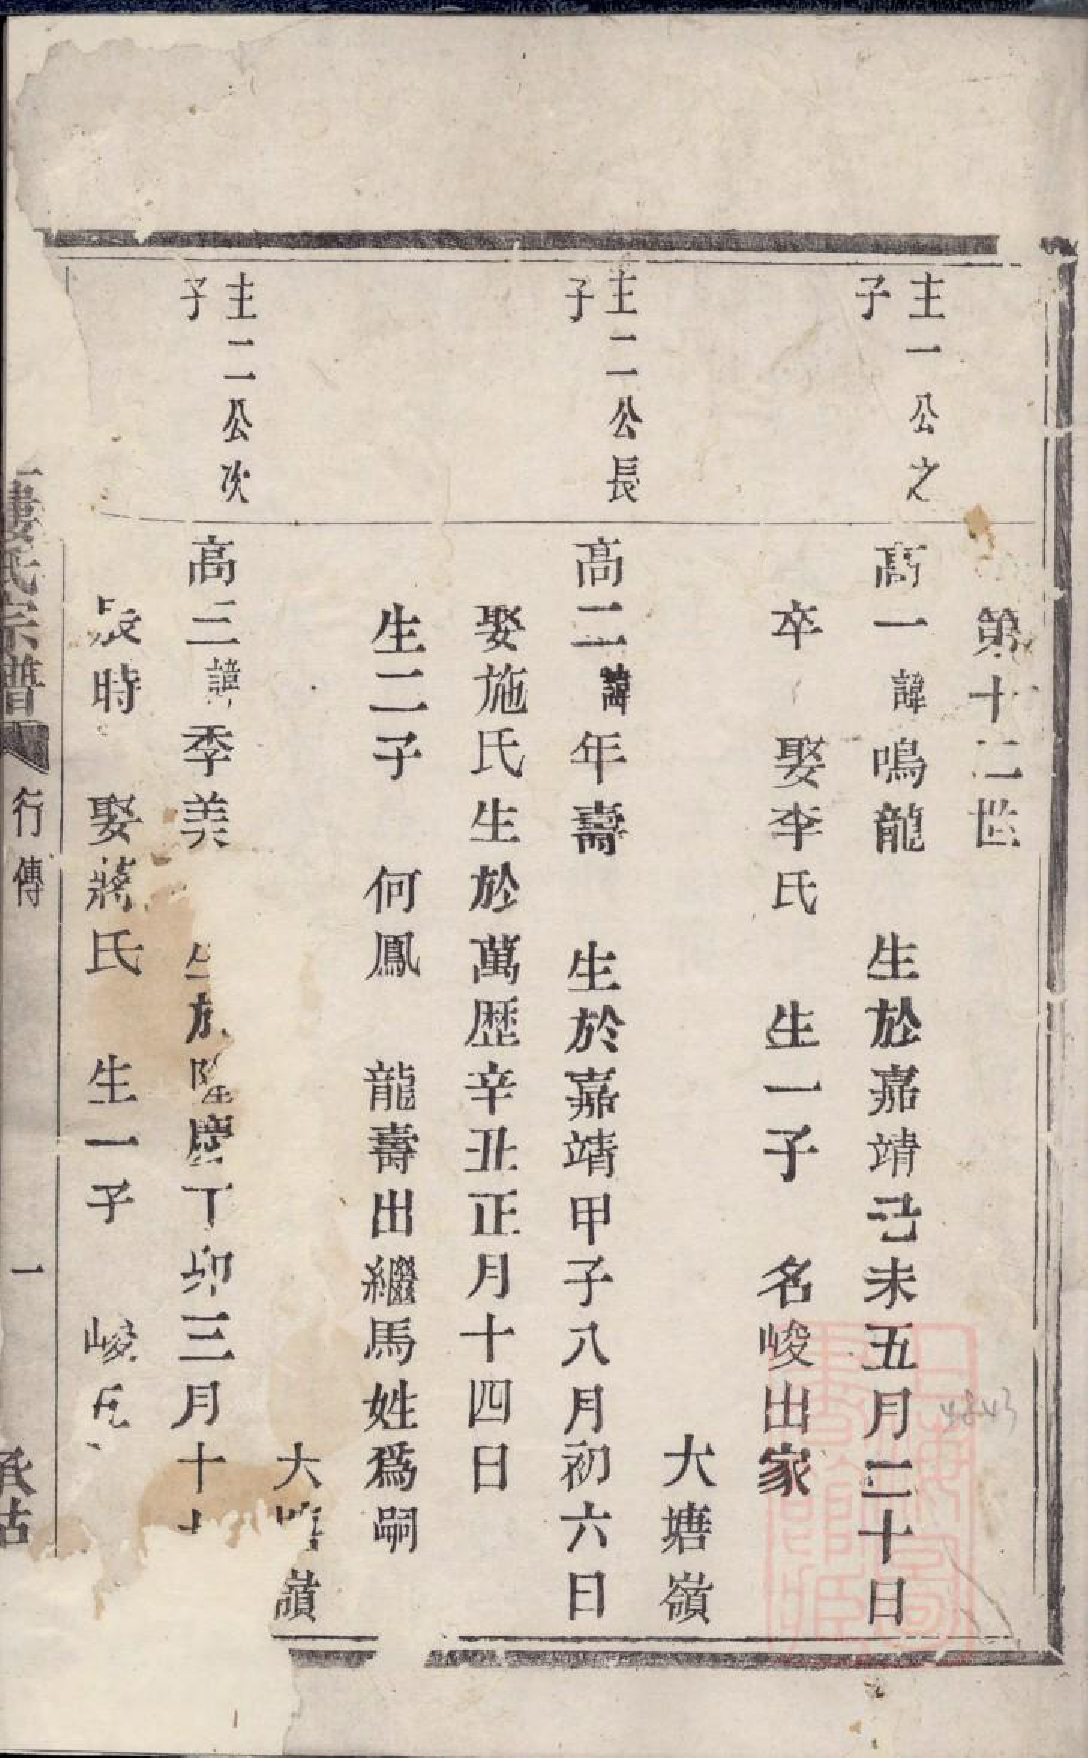 第十二世
主一公之
子
高一諱鳴龍 生於嘉靖己未五月二十日
卒 娶李氏 生一子 名峻出家
大塘嶺
主二公長
子
高二諱年壽 生於嘉靖甲子八月初六日
娶施氏生於萬歷辛丑正月十四日
生二子 何鳳 龍壽出繼馬姓爲嗣
大塘嶺
主二公次
子
高三諱季美 生於隆慶丁卯三月十
辰時 娶蔣氏 生一子 峻
婁氏宗譜 行傳 一 承祜
4843